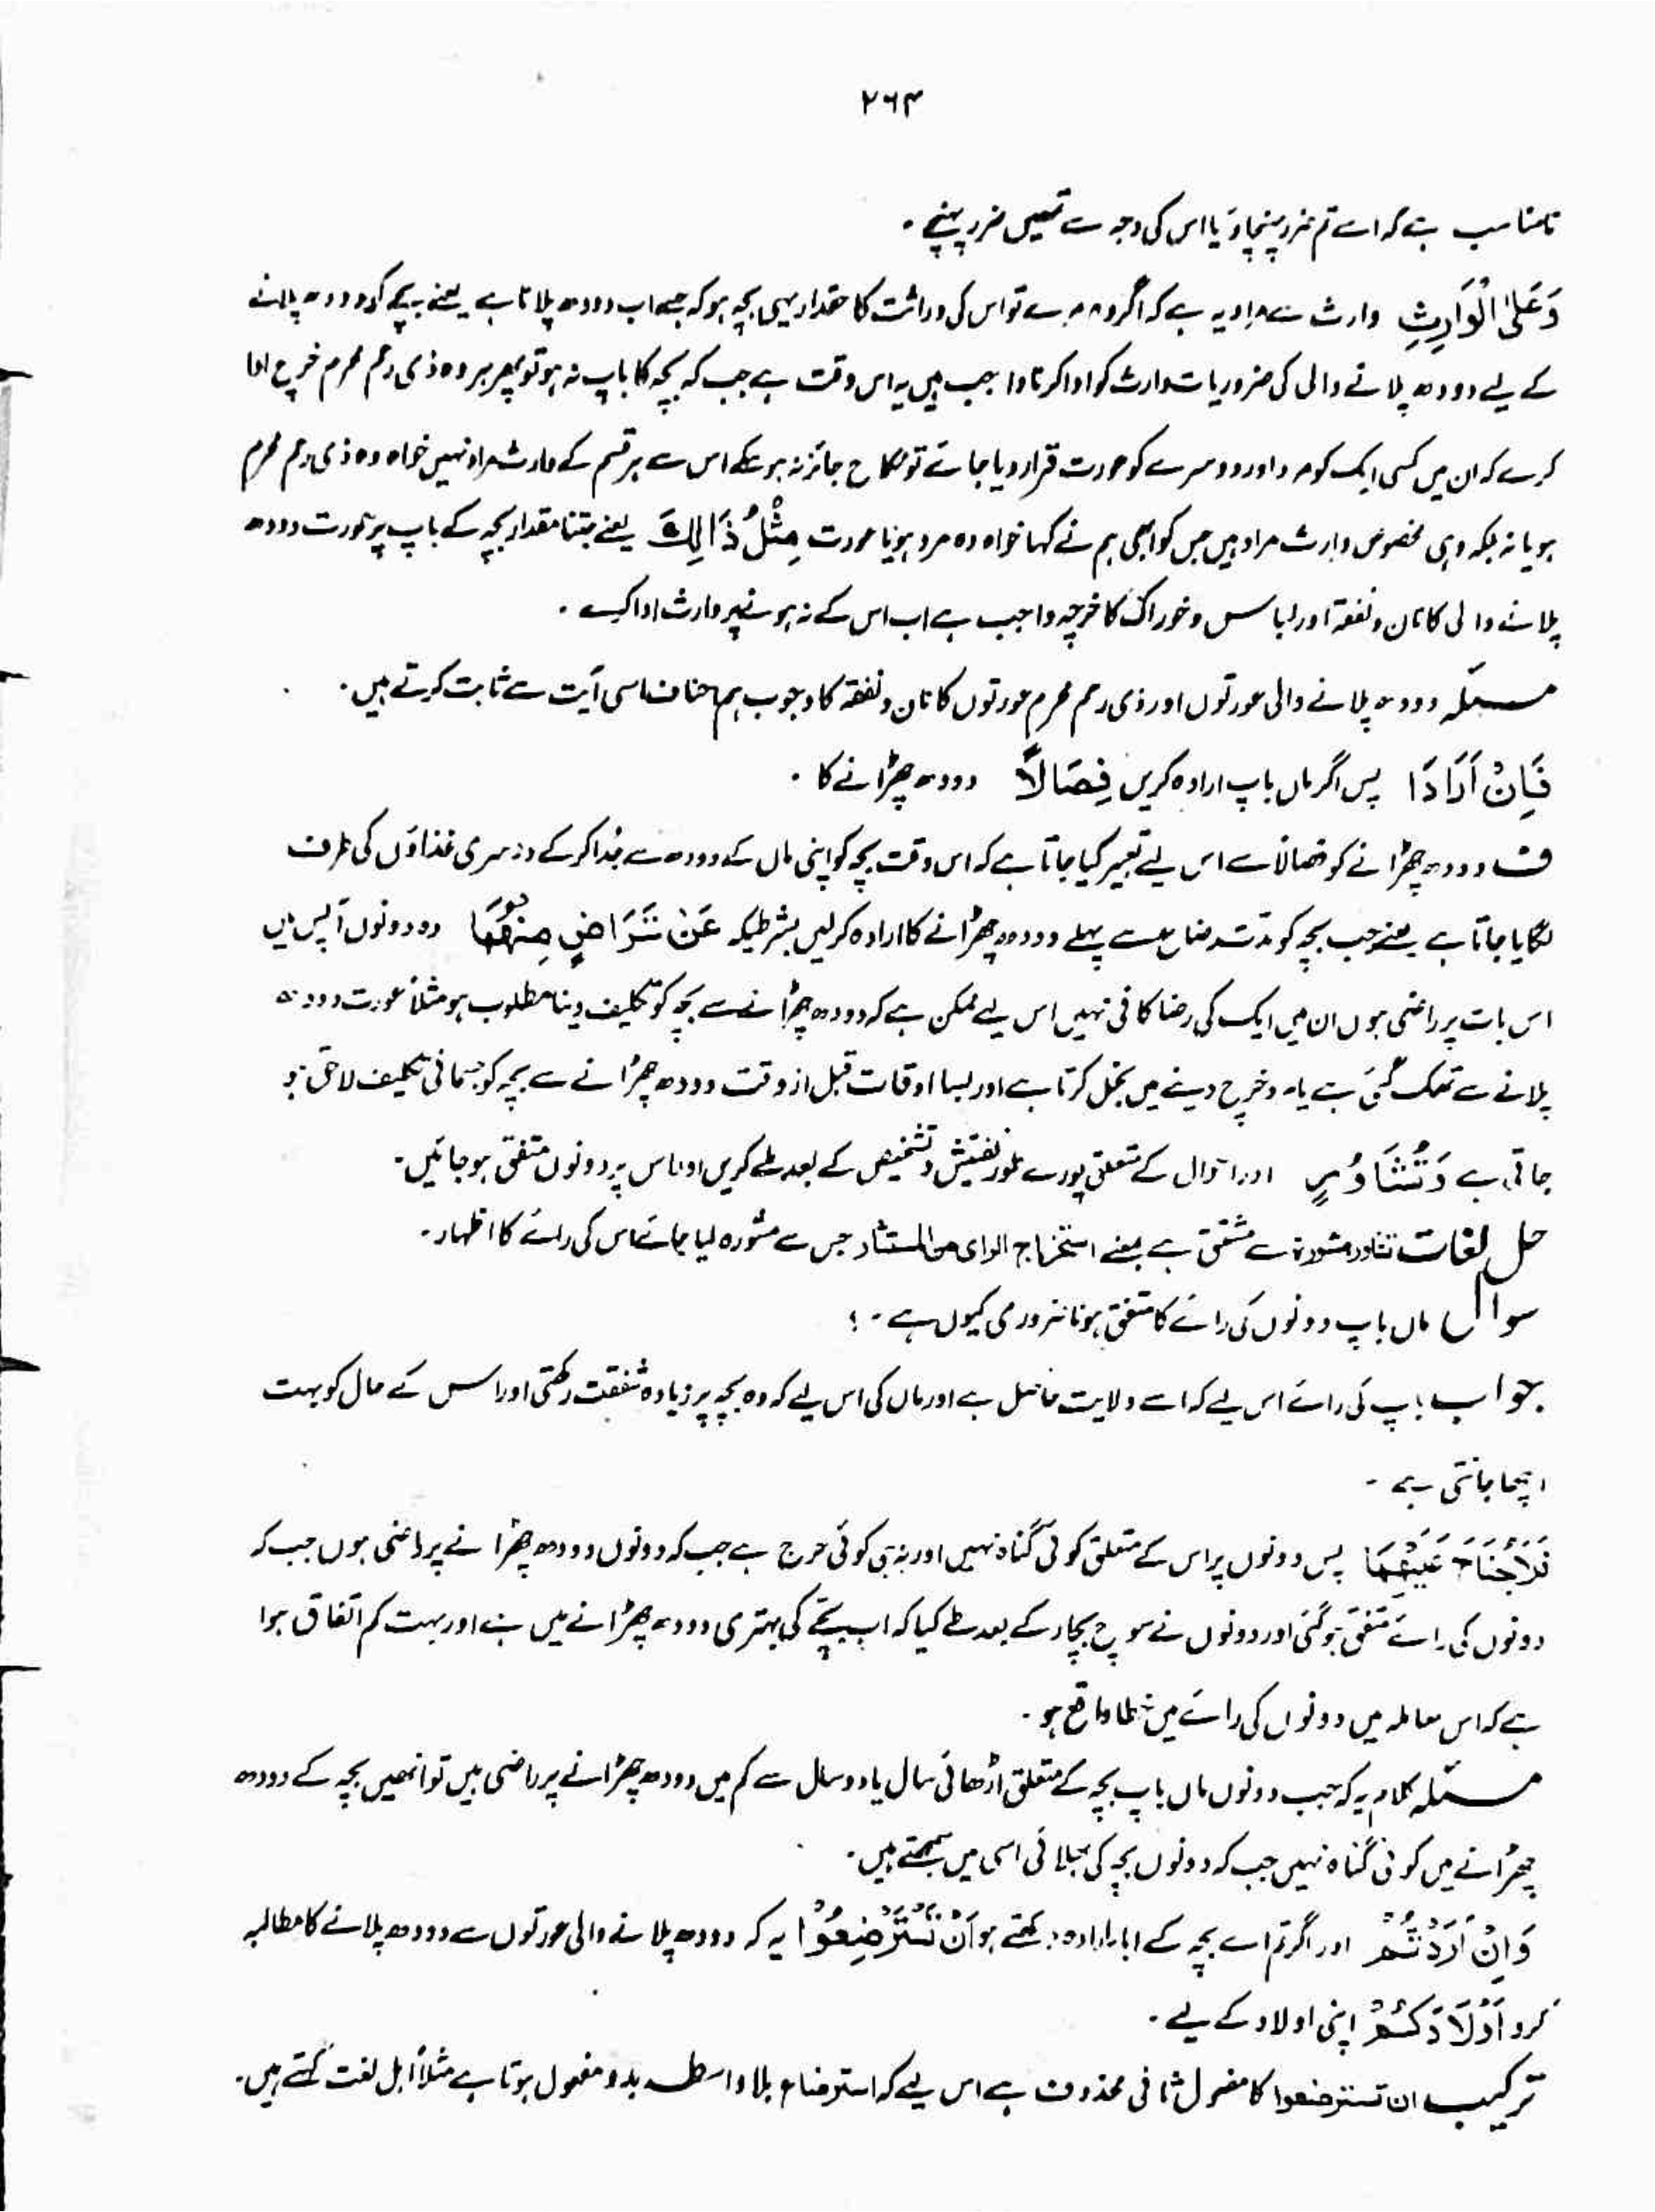 ۲۶۴
نامناسب ہے کہ اسے تم ضرر پہنچاؤ یا اس کی وجہ سے تمہیں ضرر پہنچے ۔
وَعَلَى الْوَارِثِ وارث سے مراد یہ ہے کہ اگر وہ مرے تو اس کی وراثت کا حقدار یہی بچہ ہو کہ جسے اب دودھ پلاتا ہے یعنے بچے کو دودھ پلانے
کے لیے دودھ پلانے والی کی ضروریات وارث کو ادا کرنا واجب ہیں یہ اس وقت ہے جب کہ بچہ کا باپ نہ ہو تو پھر ہر وہ ذی رحم محرم خرچ ادا
کرے کہ ان میں کسی ایک کو مرد اور دوسرے کو عورت قرار دیا جائے تو نکاح جائز نہ ہو سکے اس سے ہر قسم کے وارث مراد نہیں خواہ وہ ذی رحم محرم
ہو یا نہ بلکہ وہی مخصوص وارث مراد ہیں جس کو ابھی ہم نے کہا خواہ وہ مرد ہو یا عورت مِثْلُ ذَالِكَ یعنے جتنا مقدار بچہ کے باپ پر عورت دودھ
پلانے والی کا نان و نفقہ اور لباس و خوراک کا خرچہ واجب ہے اب اس کے نہ ہونے پر وارث ادا کرے ۔
مسئلہ دودھ پلانے والی عورتوں اور ذی رحم محرم عورتوں کا نان و نفقہ کا وجوب ہم احناف اسی آیت سے ثابت کرتے ہیں ۔
فَاِنْ اَرَادَا پس اگر ماں باپ ارادہ کریں فِصَالًا دودھ چھڑانے کا ۔
ف دودھ چھڑانے کو فصالا سے اس لیے تعبیر کیا جاتا ہے کہ اس وقت بچہ کو اپنی ماں کے دودھ سے جُدا کر کے دوسری غذاؤں کی طرف
لگایا جاتا ہے یعنے جب بچہ کو مدت رضاع سے پہلے دودھ چھڑانے کا ارادہ کر لیں بشرطیکہ عَنْ تَرَاضٍ مِنْهُمَا وہ دونوں آپس میں
اس بات پر راضی ہوں ان میں ایک کی رضا کافی نہیں اس لیے ممکن ہے کہ دودھ چھڑانے سے بچہ کو تکلیف دینا مطلوب ہو مثلاً عورت دودھ
پلانے سے تھک گئی ہے یا مرد خرچ دینے میں بخل کرتا ہے اور بسا اوقات قبل از وقت دودھ چھڑانے سے بچہ کو جسمانی تکلیف لاحق ہو
جاتی ہے وَتَشَاوُرٍ اور احوال کے متعلق پورے طور تفتیش و تشخیص کے بعد طے کریں اور اس پر دونوں متفق ہو جائیں ۔
حل لغات تشاور مشورۃ سے مشتق ہے بمعنے استخراج الرای من المستشار جس سے مشورہ لیا جائے اس کی رائے کا اظہار ۔
سوال ماں باپ دونوں کی رائے کا متفق ہونا ضروری کیوں ہے ۔ ؟
جواب باپ کی رائے اس لیے کہ اسے ولایت حاصل ہے اور ماں کی اس لیے کہ وہ بچہ پر زیادہ شفقت رکھتی اور اس کے حال کو بہت
اچھا جانتی ہے ۔
فَلَا جُنَاحَ عَلَيْهِمَا پس دونوں پر اس کے متعلق کوئی گناہ نہیں اور نہ ہی کوئی حرج ہے جب کہ دونوں دودھ چھڑانے پر راضی ہوں جب کہ
دونوں کی رائے متفق ہو گئی اور دونوں نے سوچ بچار کے بعد طے کیا کہ اب بچّے کی بہتری دودھ چھڑانے میں ہے اور بہت کم اتفاق ہوا
ہے کہ اس معاملہ میں دونوں کی رائے میں خطا واقع ہو ۔
مسئلہ کلام یہ کہ جب دونوں ماں باپ بچہ کے متعلق اڑھائی سال یا دو سال سے کم میں دودھ چھڑانے پر راضی ہیں تو انھیں بچہ کے دودھ
چھڑانے میں کوئی گناہ نہیں جب کہ دونوں بچہ کی بھلائی اسی میں سمجھتے ہیں ۔
وَاِنْ اَرَدْتُّمْ اور اگر تم اے بچہ کے ابا ارادہ رکھتے ہو اَنْ تَسْتَرْضِعُوْا یہ کہ دودھ پلانے والی عورتوں سے دودھ پلانے کا مطالبہ
کرو اَوْلَادَكُمْ اپنی اولاد کے لیے ۔
ترکیب ان تسترضعوا کا مفعول ثانی محذوف ہے اس لیے کہ استرضاع بلا واسطہ بدو مفعول ہوتا ہے مثلاً اہل لغت کہتے ہیں ۔